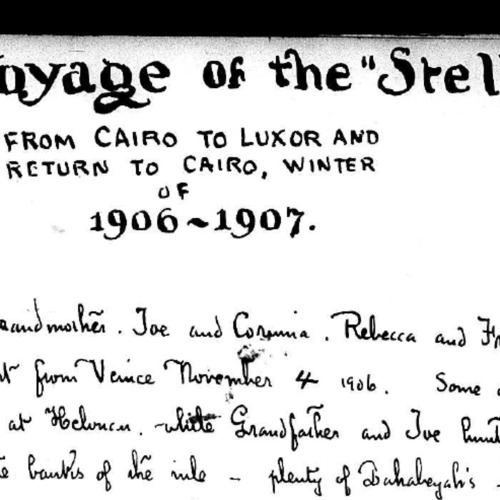 oyage of the "Stel
FROM CAIRO TO LUXOR AND
RETURN TO CAIRO, WINTER
OF
1906~1907.
andmother. Joe and Corinnia. Rebecca and F
from Venice November 4 1906. Some
at Helouan. while Grandfather and Joe hunt
banks of the nile – plenty of Dahabeyah's